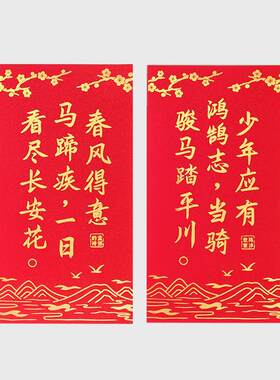 春风得意
马蹄疾，一日
看尽长安花。
少年应有
鸿鹄志，当骑
骏马踏平川。